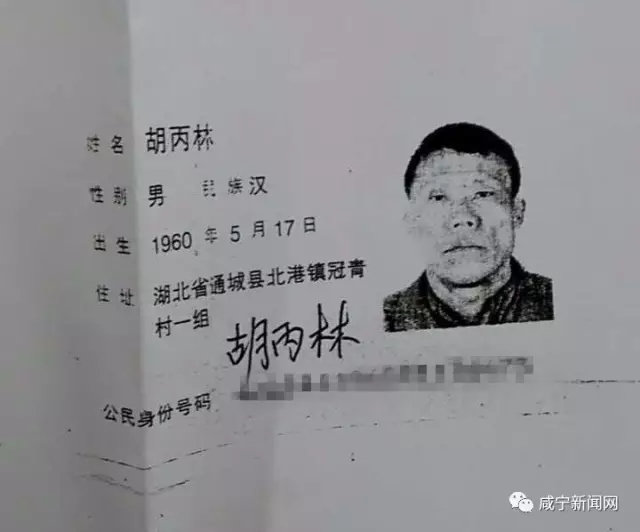 姓名 胡丙林
性别 男 民族 汉
出生 1960 年 5 月 17 日
住址 湖北省通城县北港镇冠青
村一组
胡丙林
公民身份号码
咸宁新闻网